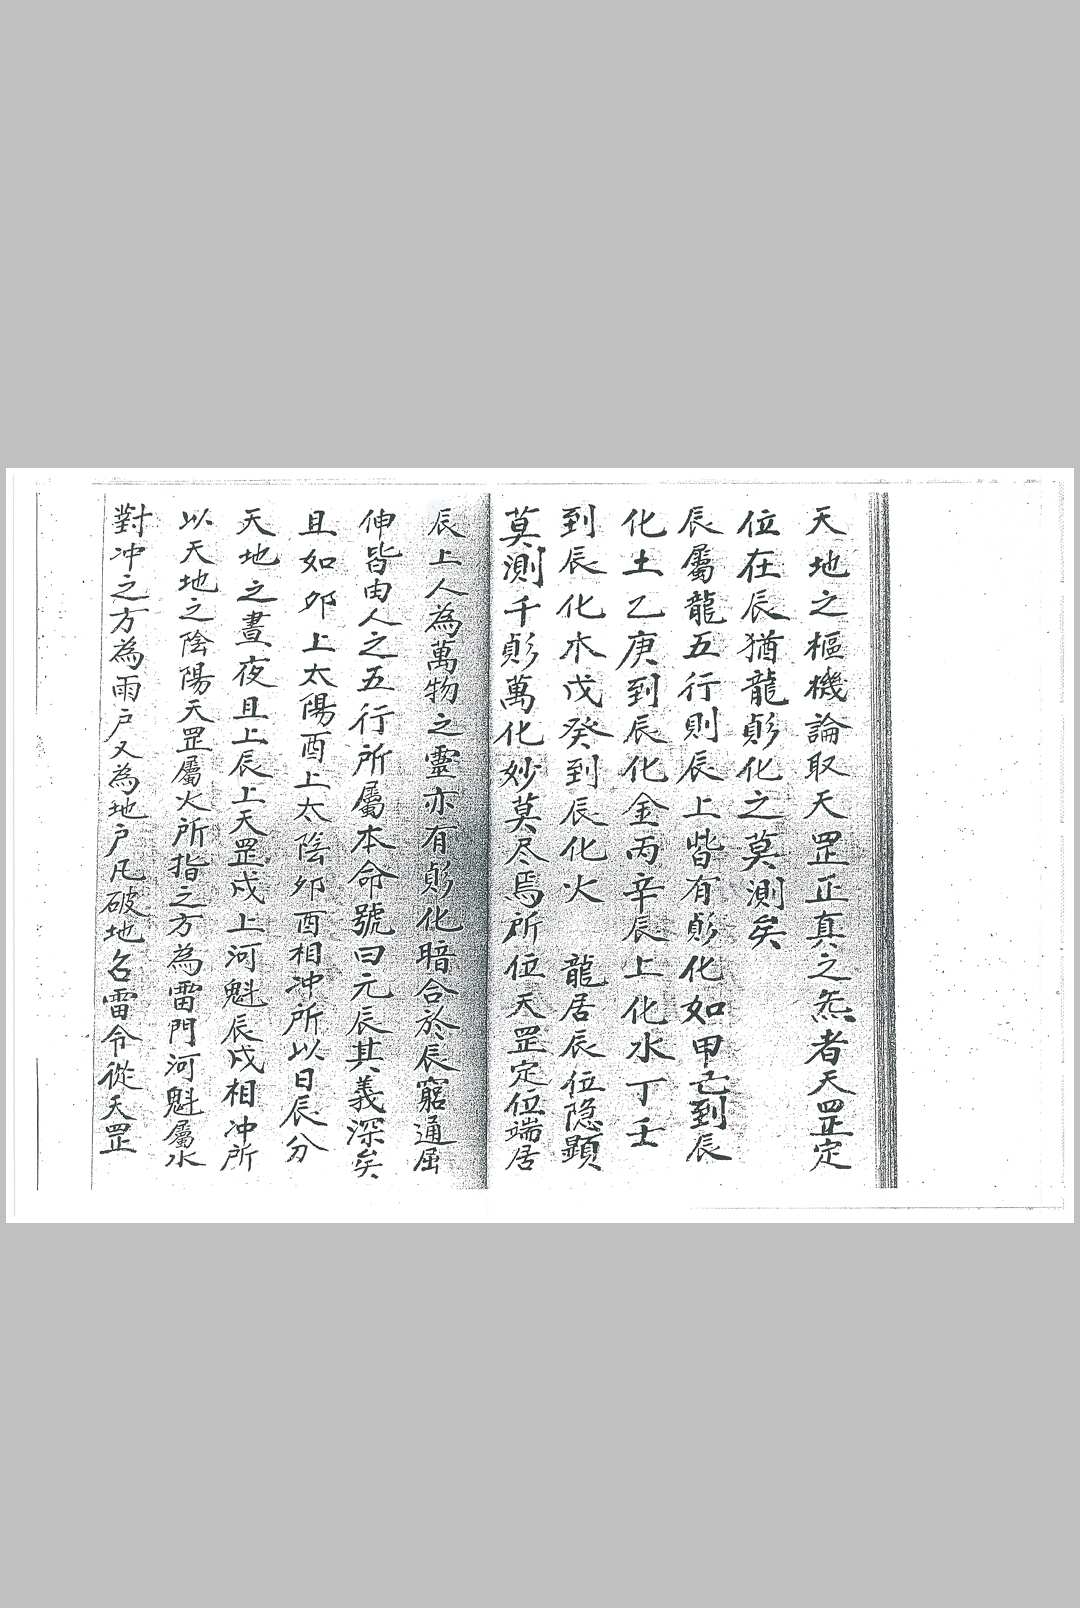 天地之樞機論取天罡正真之炁者天罡定
位在辰猶龍㱩化之莫測矣
辰屬龍五行則辰上皆有㱩化如甲己到辰
化土乙庚到辰化金丙辛辰上化水丁壬
到辰化木戊癸到辰化火 龍居辰位隐顯
莫測千㱩萬化妙莫尽焉所位天罡定位端居
辰上人為萬物之靈亦有㱩化暗合於辰窮通屈
伸皆由人之五行所屬本命號曰元辰其義深矣
且如夘上太陽酉上太陰夘酉相冲所以日辰分
天地之晝夜且上辰上天罡戌上河魁辰戌相冲所
以天地之陰陽天罡屬火所指之方為雷門河魁屬水
對冲之方為雨户又為地户凡破地召雷令從天罡